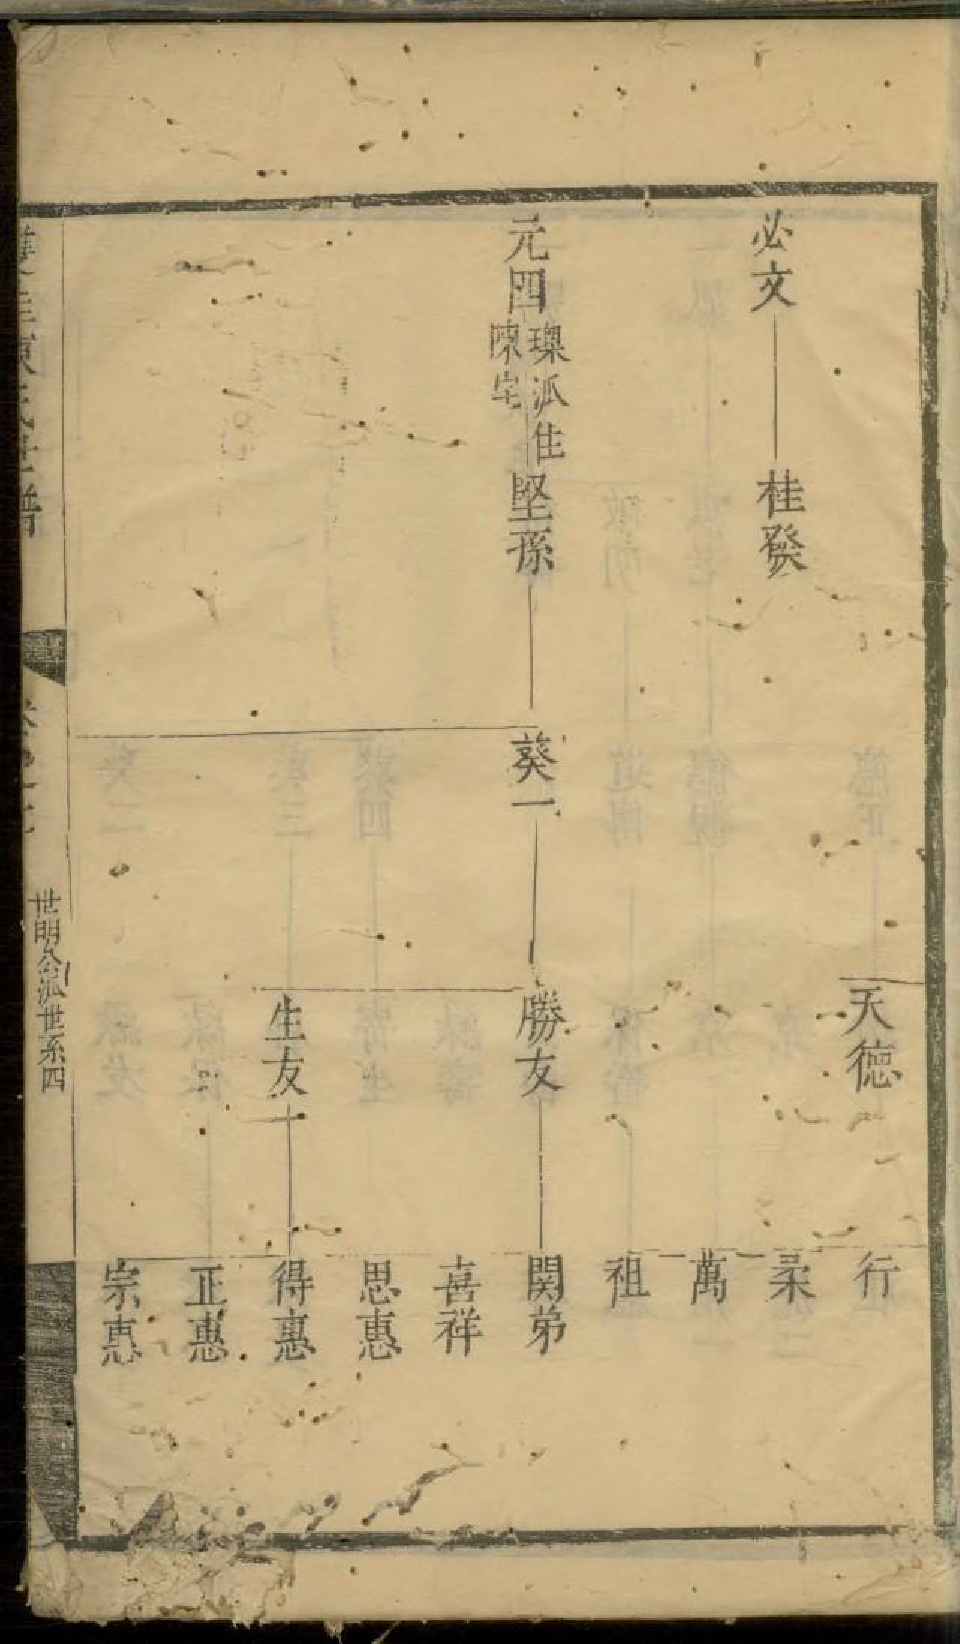 必文
桂發
元四
璟派住
陳宅
堅孫
葵一
天德
勝友
生友
行
柔
萬
祖
関弟
喜祥
思惠
得惠
正惠
宗惠
氏世譜
卷之
世明公派世系四